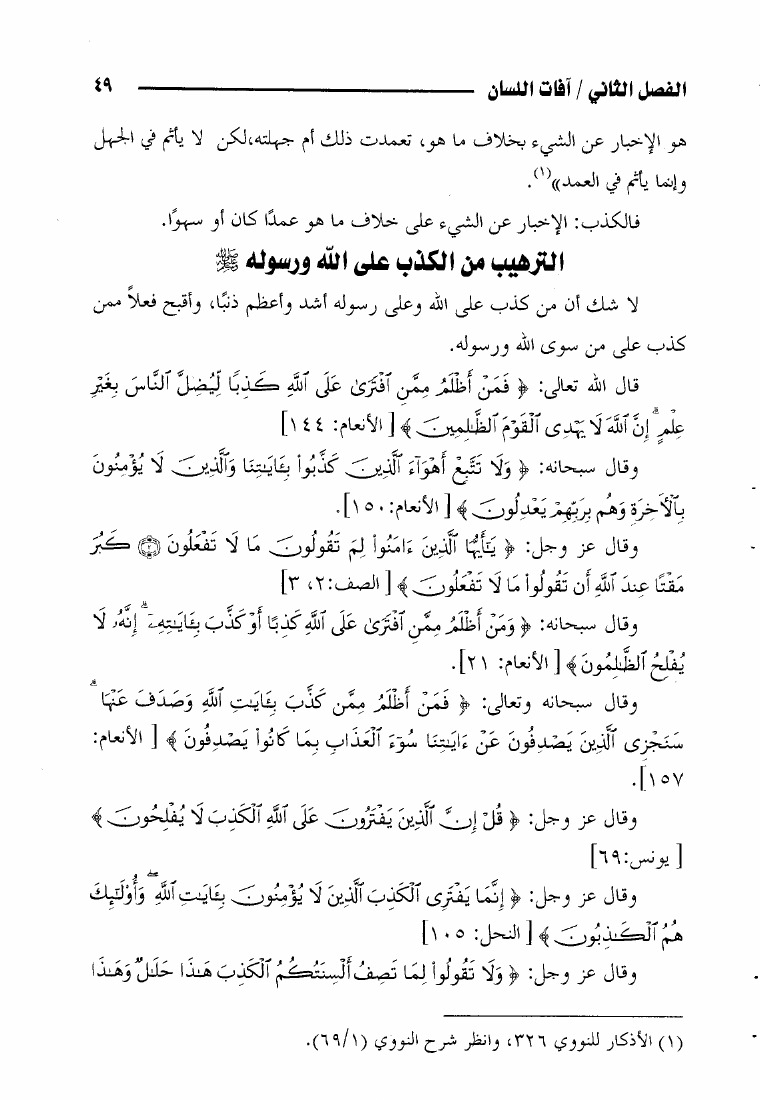 الفصل الثاني / آفات اللسان ٤٩
هو الإخبار عن الشيء بخلاف ما هو، تعمدت ذلك أم جهلته،لكن لا يأثم في الجهل
وإنما يأثم في العمد»(١).
فالكذب: الإخبار عن الشيء على خلاف ما هو عمدًا كان أو سهوًا.
الترهيب من الكذب على الله ورسوله ﷺ
لا شك أن من كذب على الله وعلى رسوله أشد وأعظم ذنبًا، وأقبح فعلاً ممن
كذب على من سوى الله ورسوله.
قال الله تعالى: ﴿ فَمَنْ أَظْلَمُ مِمَّنِ ٱفْتَرَىٰ عَلَى ٱللَّهِ كَذِبًا لِّيُضِلَّ ٱلنَّاسَ بِغَيْرِ
عِلْمٍ ۗ إِنَّ ٱللَّهَ لَا يَهْدِى ٱلْقَوْمَ ٱلظَّـٰلِمِينَ ﴾ [ الأنعام: ١٤٤]
وقال سبحانه: ﴿ وَلَا تَتَّبِعْ أَهْوَآءَ ٱلَّذِينَ كَذَّبُوا۟ بِـَٔايَـٰتِنَا وَٱلَّذِينَ لَا يُؤْمِنُونَ
بِٱلْـَٔاخِرَةِ وَهُم بِرَبِّهِمْ يَعْدِلُونَ ﴾ [ الأنعام:١٥٠].
وقال عز وجل: ﴿ يَـٰٓأَيُّهَا ٱلَّذِينَ ءَامَنُوا۟ لِمَ تَقُولُونَ مَا لَا تَفْعَلُونَ ۝٢ كَبُرَ
مَقْتًا عِندَ ٱللَّهِ أَن تَقُولُوا۟ مَا لَا تَفْعَلُونَ ﴾ [ الصف:٢، ٣]
وقال سبحانه: ﴿ وَمَنْ أَظْلَمُ مِمَّنِ ٱفْتَرَىٰ عَلَى ٱللَّهِ كَذِبًا أَوْ كَذَّبَ بِـَٔايَـٰتِهِۦٓ ۗ إِنَّهُۥ لَا
يُفْلِحُ ٱلظَّـٰلِمُونَ ﴾ [ الأنعام: ٢١].
وقال سبحانه وتعالى: ﴿ فَمَنْ أَظْلَمُ مِمَّن كَذَّبَ بِـَٔايَـٰتِ ٱللَّهِ وَصَدَفَ عَنْهَا ۗ
سَنَجْزِى ٱلَّذِينَ يَصْدِفُونَ عَنْ ءَايَـٰتِنَا سُوٓءَ ٱلْعَذَابِ بِمَا كَانُوا۟ يَصْدِفُونَ ﴾ [ الأنعام:
١٥٧].
وقال عز وجل: ﴿ قُلْ إِنَّ ٱلَّذِينَ يَفْتَرُونَ عَلَى ٱللَّهِ ٱلْكَذِبَ لَا يُفْلِحُونَ ﴾
[ يونس:٦٩]
وقال عز وجل: ﴿ إِنَّمَا يَفْتَرِى ٱلْكَذِبَ ٱلَّذِينَ لَا يُؤْمِنُونَ بِـَٔايَـٰتِ ٱللَّهِ ۖ وَأُو۟لَـٰٓئِكَ
هُمُ ٱلْكَـٰذِبُونَ ﴾ [ النحل: ١٠٥]
وقال عز وجل: ﴿ وَلَا تَقُولُوا۟ لِمَا تَصِفُ أَلْسِنَتُكُمُ ٱلْكَذِبَ هَـٰذَا حَلَـٰلٌ وَهَـٰذَا
(١) الأذكار للنووي ٣٢٦، وانظر شرح النووي (٦٩/١).